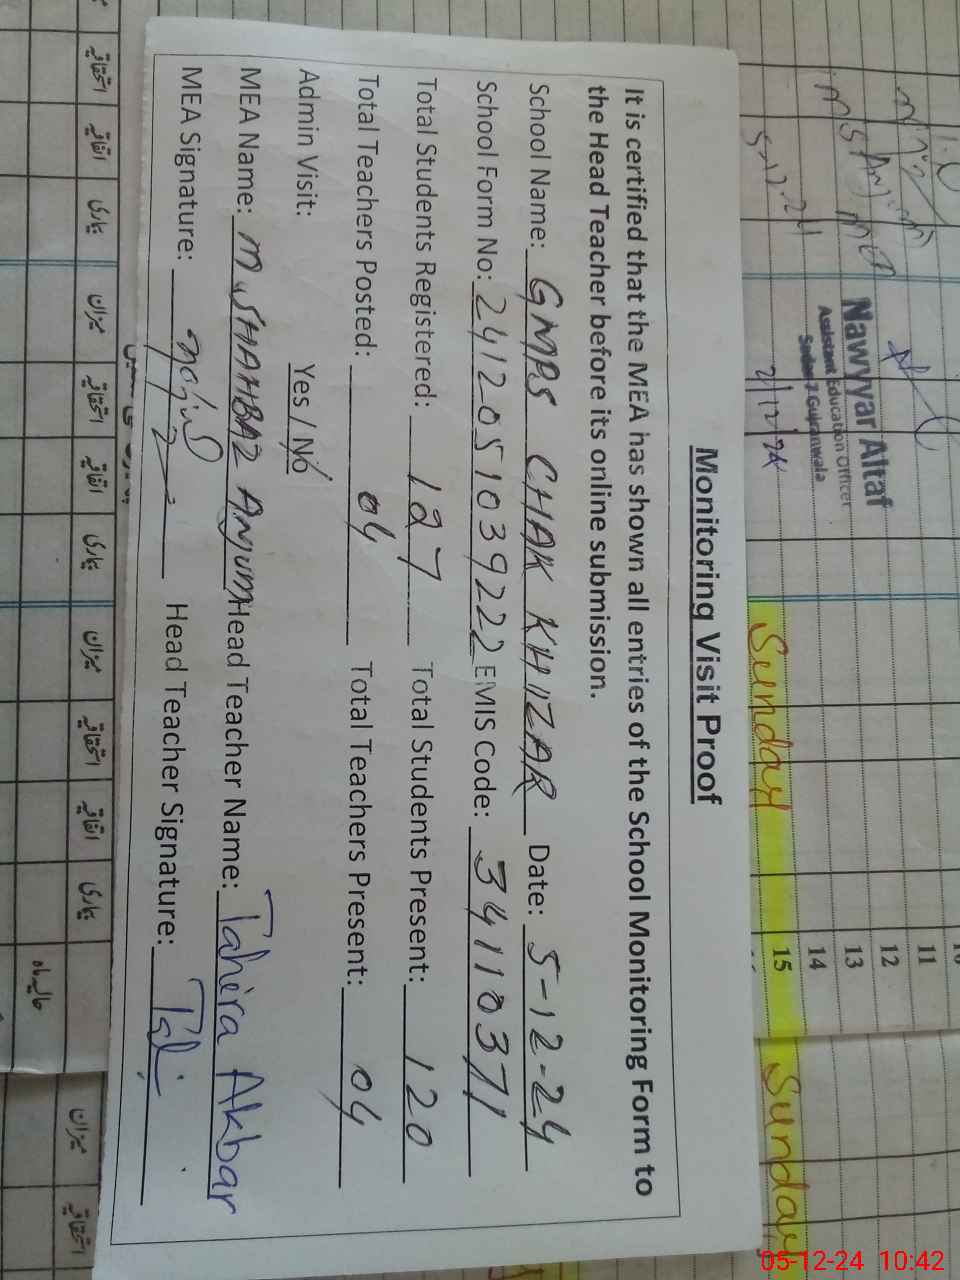 Monitoring Visit Proof
It is certified that the MEA has shown all entries of the School Monitoring Form to
the Head Teacher before its online submission.
School Name: GMPS CHAK KHIZAR Date: 5-12-24
School Form No: 2412051039222 EMIS Code: 34110371
Total Students Registered: 127 Total Students Present: 120
Total Teachers Posted: 04 Total Teachers Present: 04
Admin Visit: Yes / No
MEA Name: M SHAHBAZ Anjum Head Teacher Name: Tahira Akbar
MEA Signature: Head Teacher Signature:
Nawyyar Altaf
Assistant Education Officer
Gujranwala
2/12/24
Sunday
Sunday
11
12
13
14
15
میزان
اتفاقیہ
استحقاقیہ
بیماری
حالیہ ماہ
05-12-24 10:42